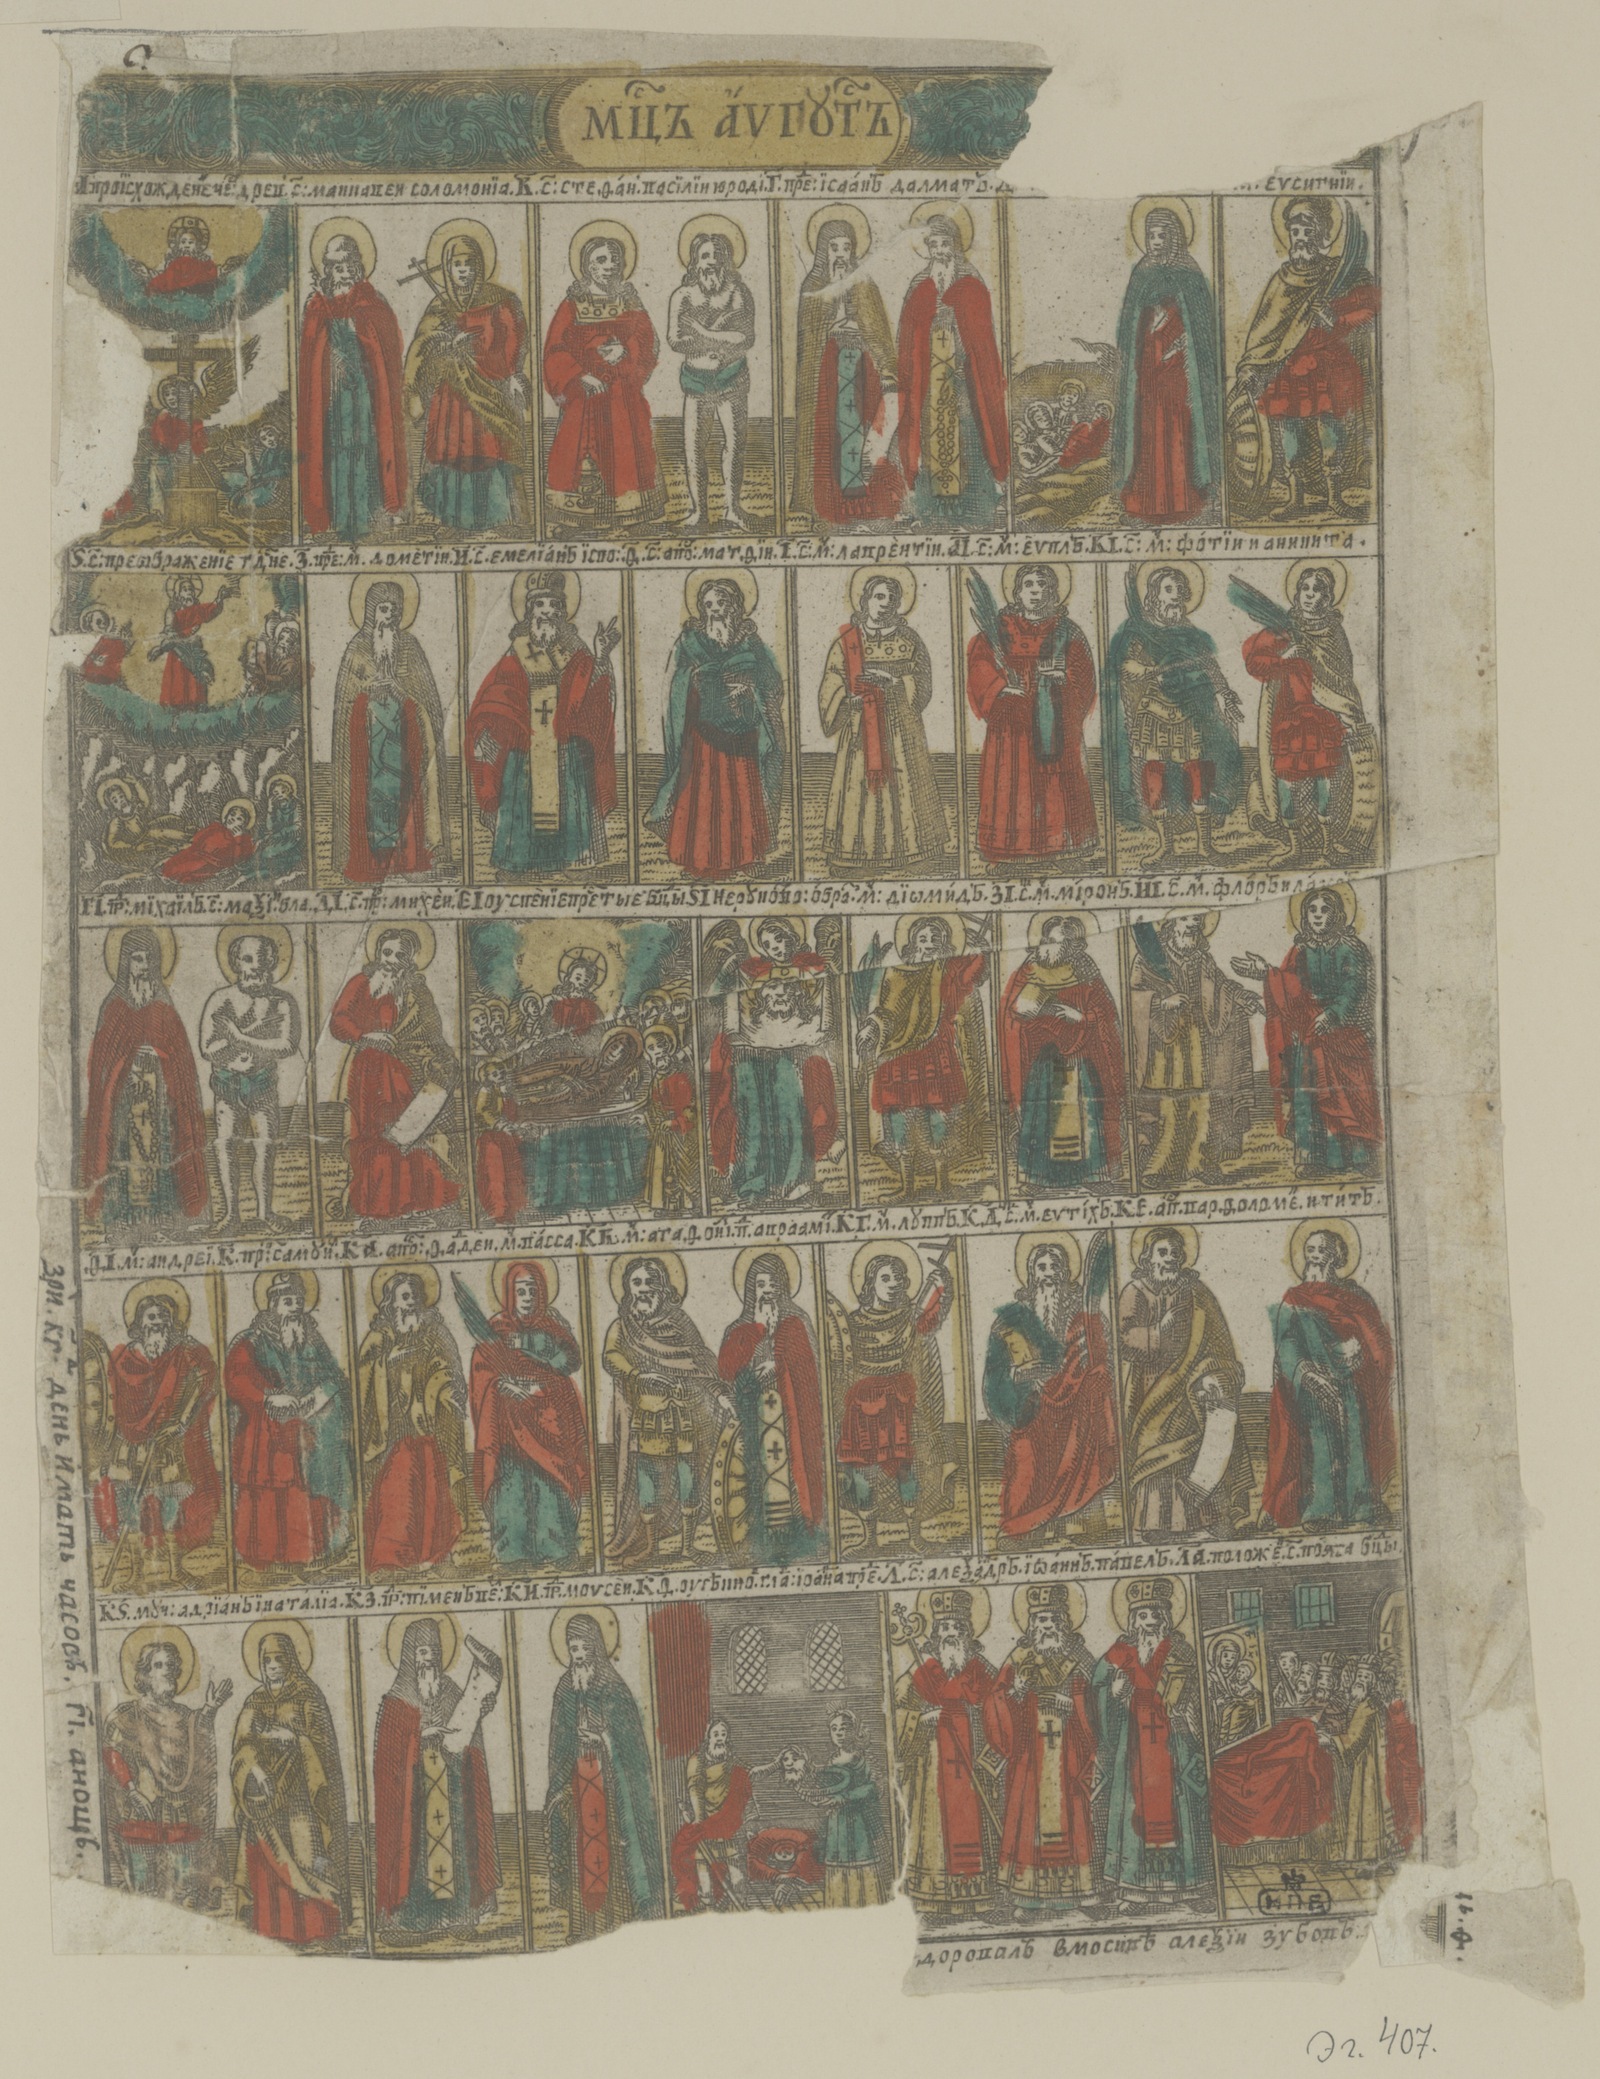 Мц҃ъ аѵгꙋст̾ъ
происхождение: древ. с҃: маккавеи соломониа. К. с҃: стеѳан. василии юроди. Г. пре: исаакъ далматъ. Д
евсигнии.
Ѕ. с҃: преображение гд҃не. З. пре: м҃. дометии. И. с҃. емелианъ испо: Ѳ. с҃: апо: матѳии. І. с҃: м҃: лаврентии. АІ. с҃: м҃: евплъ. ВІ. с҃: м҃: фотии и аникита.
ГІ. пр: михаилъ. с҃: маѯи: бла. ДІ. с҃: пр: михеи. ЕІ оуспение прет҃ые бц҃ы ЅІ нерꙋко: обра. м҃: диомидъ. ЗІ. с҃. м҃. миронъ. ИІ. с҃. м҃. флоръ и лавръ
ѲІ. м҃: андреи. К. пр: самꙋи. КА. апо: ѳадеи. м҃. васса. КВ. м҃: агаѳони. п҃. авраами. КГ. м҃. лꙋппъ. КД. с҃. м҃. евтихъ. КЕ. ап҃. варѳоломе. и титъ.
КЅ. мꙋч: адрианъ и наталиа. КЗ. пр: пименъ ве. КИ. пр: моусеи. КѲ. оусѣкно: гла: иоанна пре. Л. с҃: алеѯадръ. иѡаннъ. павелъ. ЛА. положе. с҃. пояса бц҃ы.
зри. кг. день имать часовъ. гі. а нощь.
доровалъ вмосквѣ алеѯiи зубовъ.
Эг. 407.